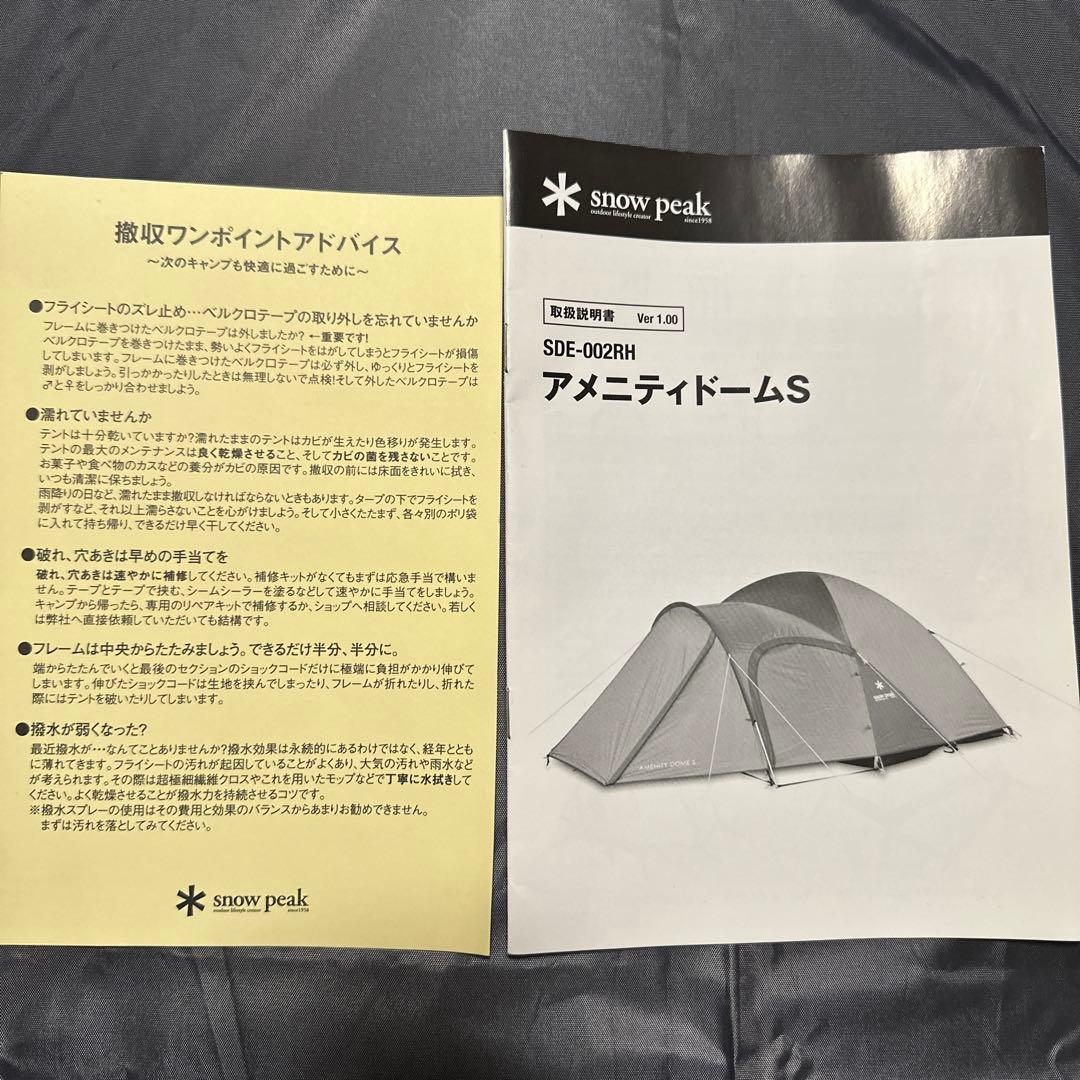 撤収ワンポイントアドバイス
〜次のキャンプも快適に過ごすために〜
●フライシートのズレ止め…ベルクロテープの取り外しを忘れていませんか
フレームに巻きつけたベルクロテープは外しましたか？←重要です！
ベルクロテープを巻きつけたまま、勢いよくフライシートをはがしてしまうとフライシートが損傷
してしまいます。フレームに巻きつけたベルクロテープは必ず外し、ゆっくりとフライシートを
剥がしましょう。引っかかったりしたときは無理しないで点検！そして外したベルクロテープは
♂と♀をしっかり合わせましょう。
●濡れていませんか
テントは十分乾いていますか？濡れたままのテントはカビが生えたり色移りが発生します。
テントの最大のメンテナンスは良く乾燥させること、そしてカビの菌を残さないことです。
お菓子や食べ物のカスなどの養分がカビの原因です。撤収の前には床面をきれいに拭き、
いつも清潔に保ちましょう。
雨降りの日など、濡れたまま撤収しなければならないときもあります。タープの下でフライシートを
剥がすなど、それ以上濡らさないことを心がけましょう。そして小さくたたまず、各々別のポリ袋
に入れて持ち帰り、できるだけ早く干してください。
●破れ、穴あきは早めの手当てを
破れ、穴あきは速やかに補修してください。補修キットがなくてもまずは応急手当で構いま
せん。テープとテープで挟む、シームシーラーを塗るなどして速やかに手当てをしましょう。
キャンプから帰ったら、専用のリペアキットで補修するか、ショップへ相談してください。若しく
は弊社へ直接依頼していただいても結構です。
●フレームは中央からたたみましょう。できるだけ半分、半分に。
端からたたんでいくと最後のセクションのショックコードだけに極端に負担がかかり伸びて
しまいます。伸びたショックコードは生地を挟んでしまったり、フレームが折れたりし、折れた
際にはテントを破いたりしてしまいます。
●撥水が弱くなった？
最近撥水が…なんてことありませんか？撥水効果は永続的にあるわけではなく、経年ととも
に薄れてきます。フライシートの汚れが起因していることがよくあり、大気の汚れや雨水など
が考えられます。その際は超極細繊維クロスやこれを用いたモップなどで丁寧に水拭きして
ください。よく乾燥させることが撥水力を持続させるコツです。
※撥水スプレーの使用はその費用と効果のバランスからあまりお勧めできません。
まずは汚れを落としてみてください。
snow peak
outdoor lifestyle creator since1958
snow peak
outdoor lifestyle creator since1958
取扱説明書 Ver 1.00
SDE-002RH
アメニティドームS
snow peak
AMENITY DOME S